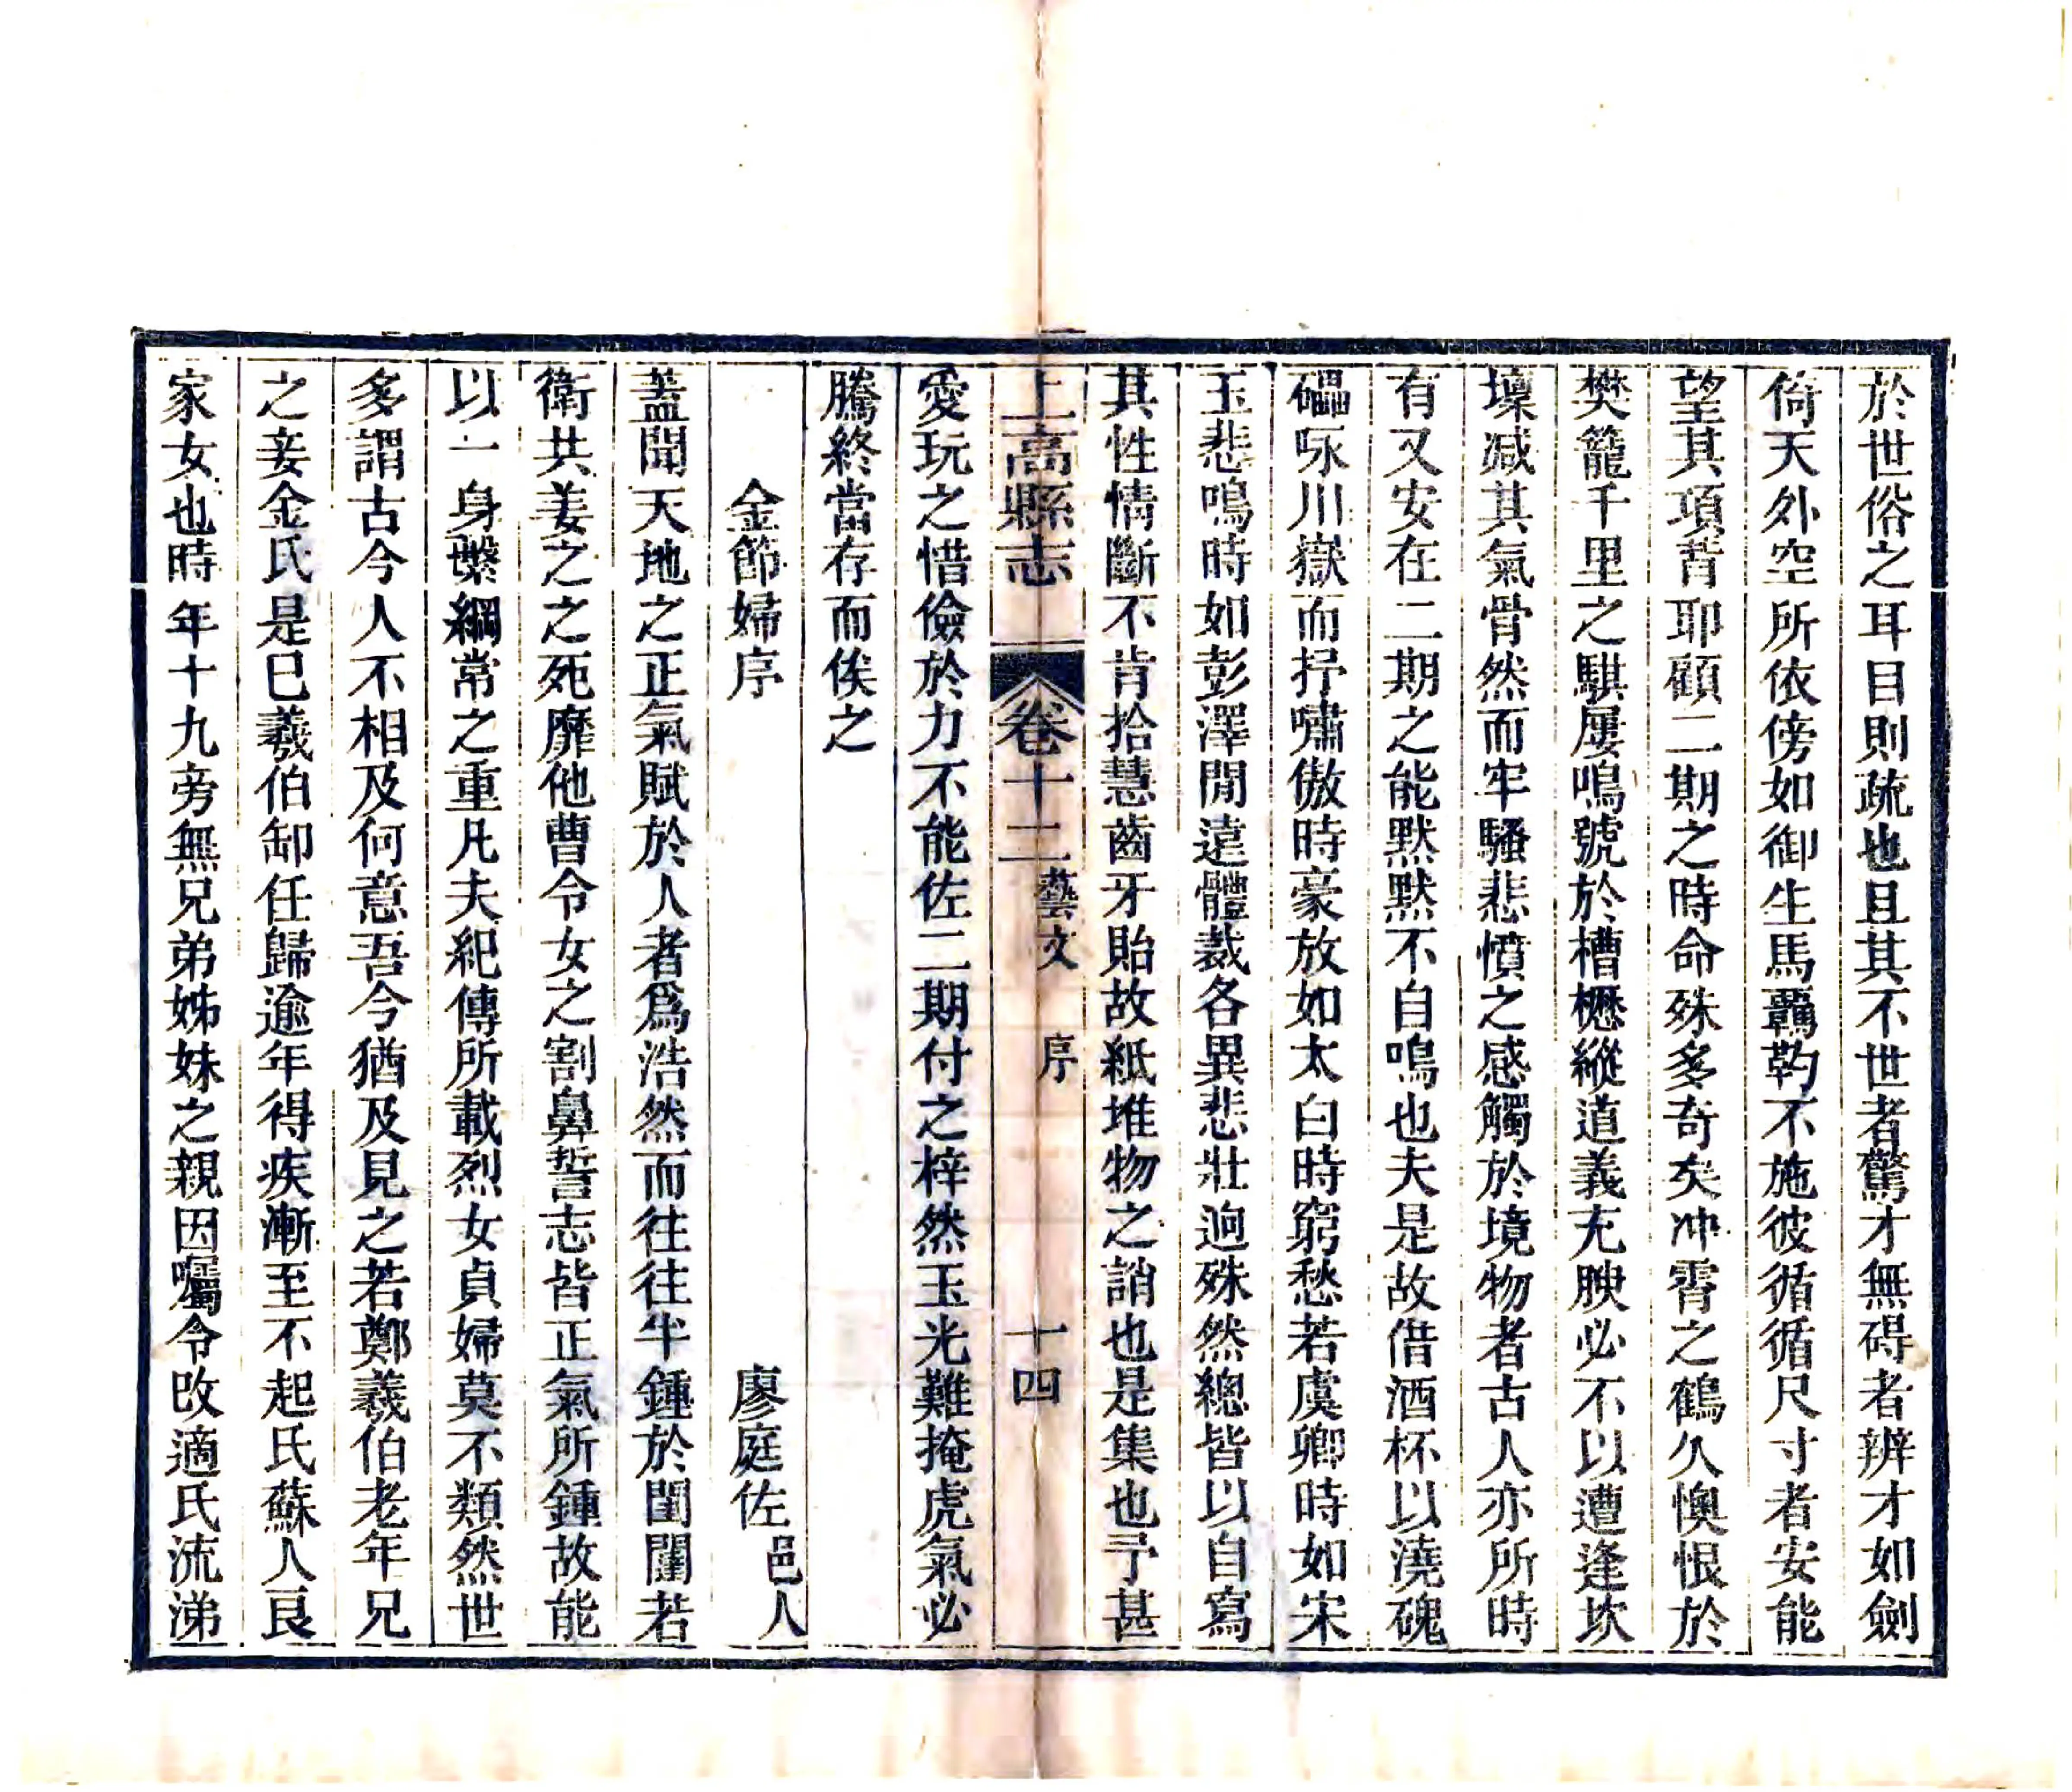 於世俗之耳目則疏也且其不世者驚才無碍者辨才如劍
倚天外空所依傍如御生馬覊靮不施彼循循尺寸者安能
望其項背耶顧二期之時命殊多奇矣冲霄之鶴久懊恨於
樊籠千里之騏屢鳴號於槽櫪縱道義充腴必不以遭逢坎
壈减其氣骨然而牢騷悲憤之感觸於境物者古人亦所時
有又安在二期之能默默不自鳴也夫是故借酒杯以澆磈
礧咏川嶽而抒嘯傲時豪放如太白時窮愁若虞卿時如宋
玉悲鳴時如彭澤閒遠體裁各異悲壯迥殊然總皆以自寫
其性情斷不肯拾慧齒牙貽故紙堆物之誚也是集也予甚
上高縣志 卷十二 藝文 序 十四
愛玩之惜儉於力不能佐二期付之梓然玉光難掩虎氣必
騰終當存而俟之
金節婦序 廖庭佐 邑人
蓋聞天地之正氣賦於人者爲浩然而往往半鍾於閨闈若
衛共姜之之死靡他曹令女之割鼻誓志皆正氣所鍾故能
以一身繫綱常之重凡夫紀傳所載烈女貞婦莫不類然世
多謂古今人不相及何意吾今猶及見之若鄭羲伯老年兄
之妾金氏是已羲伯卸任歸逾年得疾漸至不起氏蘇人良
家女也時年十九旁無兄弟姊妹之親因囑令改適氏流涕